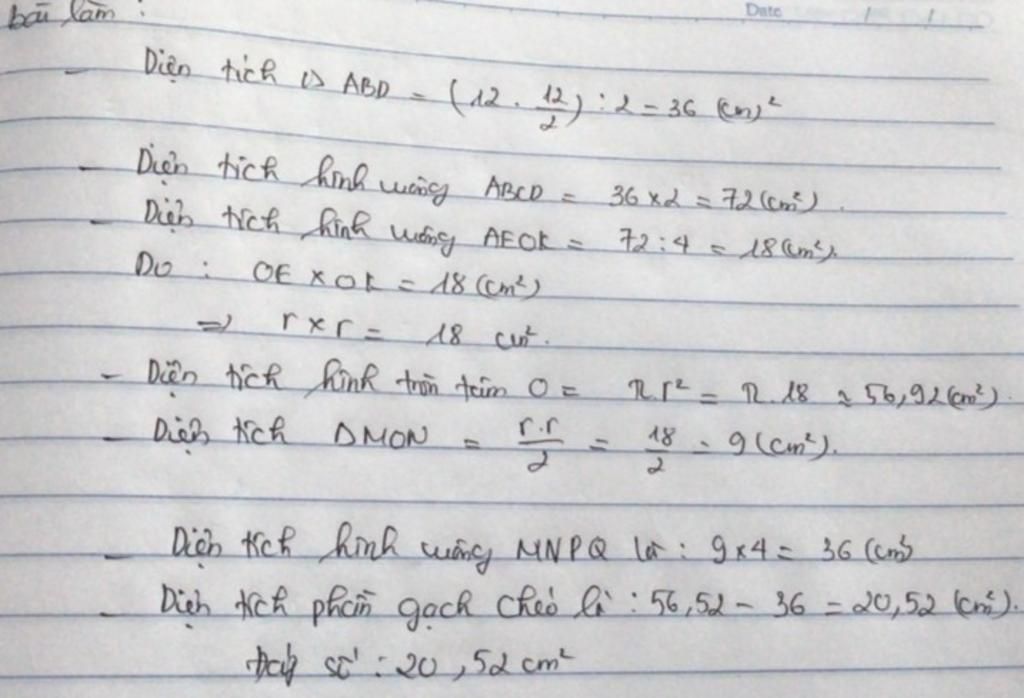 bài làm :
Date / /
- Diện tích Δ ABD = (12 . 12/2) : 2 = 36 (cm)²
- Diện tích hình vuông ABCD = 36 x 2 = 72 (cm²).
- Diện tích hình vuông AEOK = 72 : 4 = 18 (cm²).
Do : OE x OK = 18 (cm²)
=> r x r = 18 cm².
- Diện tích hình tròn tâm O = π.r² = π.18 ≈ 56,92 (cm²).
- Diện tích ΔMON = r.r/2 = 18/2 = 9 (cm²).
- Diện tích hình vuông MNPQ là : 9 x 4 = 36 (cm²)
- Diện tích phần gạch chéo là : 56,52 - 36 = 20,52 (cm²).
Đáp số : 20,52 cm²